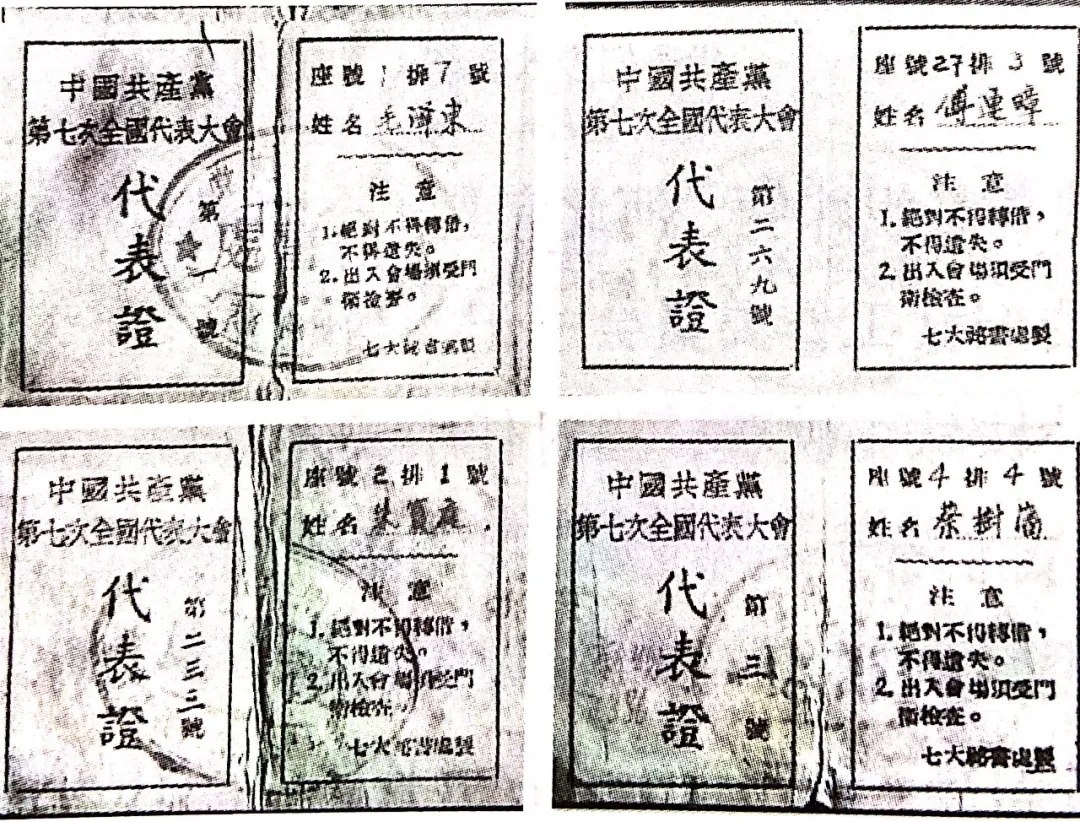 中國共產黨
第七次全國代表大會
代表證
第一號
座號1排7號
姓名 毛澤東
注意
1. 絕對不得轉借,
不得遺失。
2. 出入會場須受門
衛檢查。
七大秘書處製
中國共產黨
第七次全國代表大會
代表證
第二六九號
座號27排3號
姓名 傅連暲
注意
1. 絕對不得轉借,
不得遺失。
2. 出入會場須受門
衛檢查。
七大秘書處製
中國共產黨
第七次全國代表大會
代表證
第二三三號
座號2排1號
姓名 朱寶庭
注意
1. 絕對不得轉借,
不得遺失。
2. 出入會場須受門
衛檢查。
七大秘書處製
中國共產黨
第七次全國代表大會
代表證
第三號
座號4排4號
姓名 蔡樹藩
注意
1. 絕對不得轉借,
不得遺失。
2. 出入會場須受門
衛檢查。
七大秘書處製